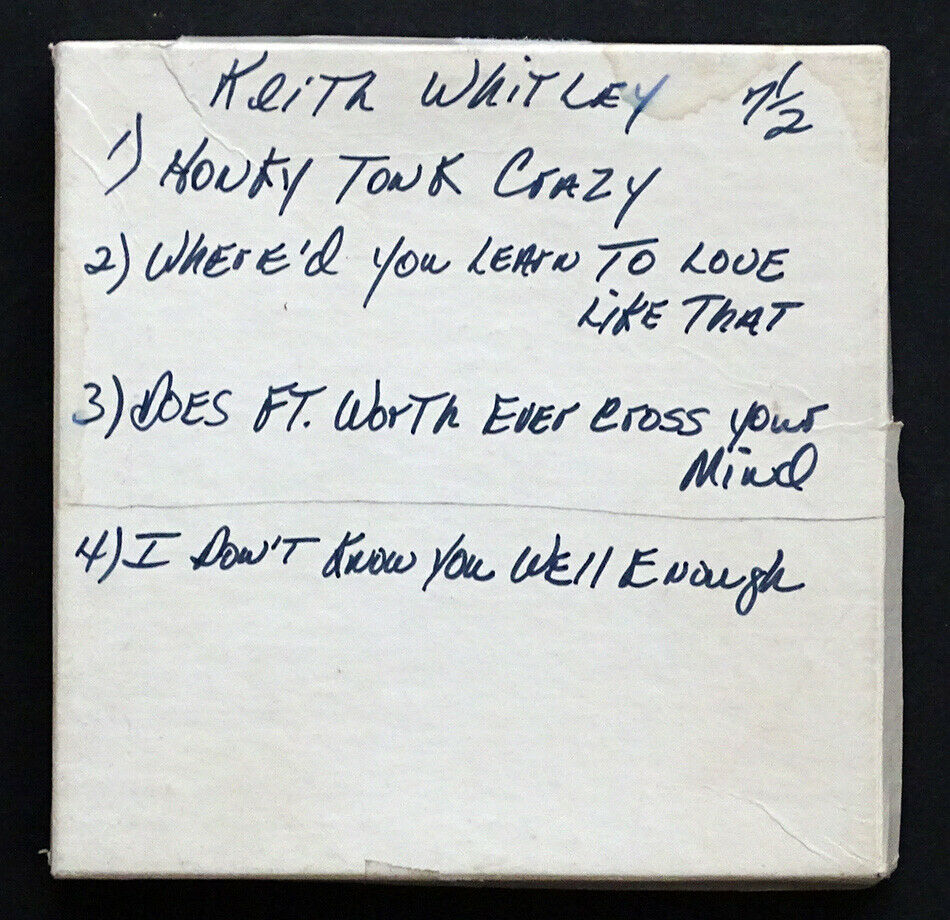 Keith Whitley 7 1/2
1) Honky Tonk Crazy
2) Where'd you Learn To Love
Like That
3) Does Ft. Worth Ever Cross your
Mind
4) I Don't Know You Well Enough